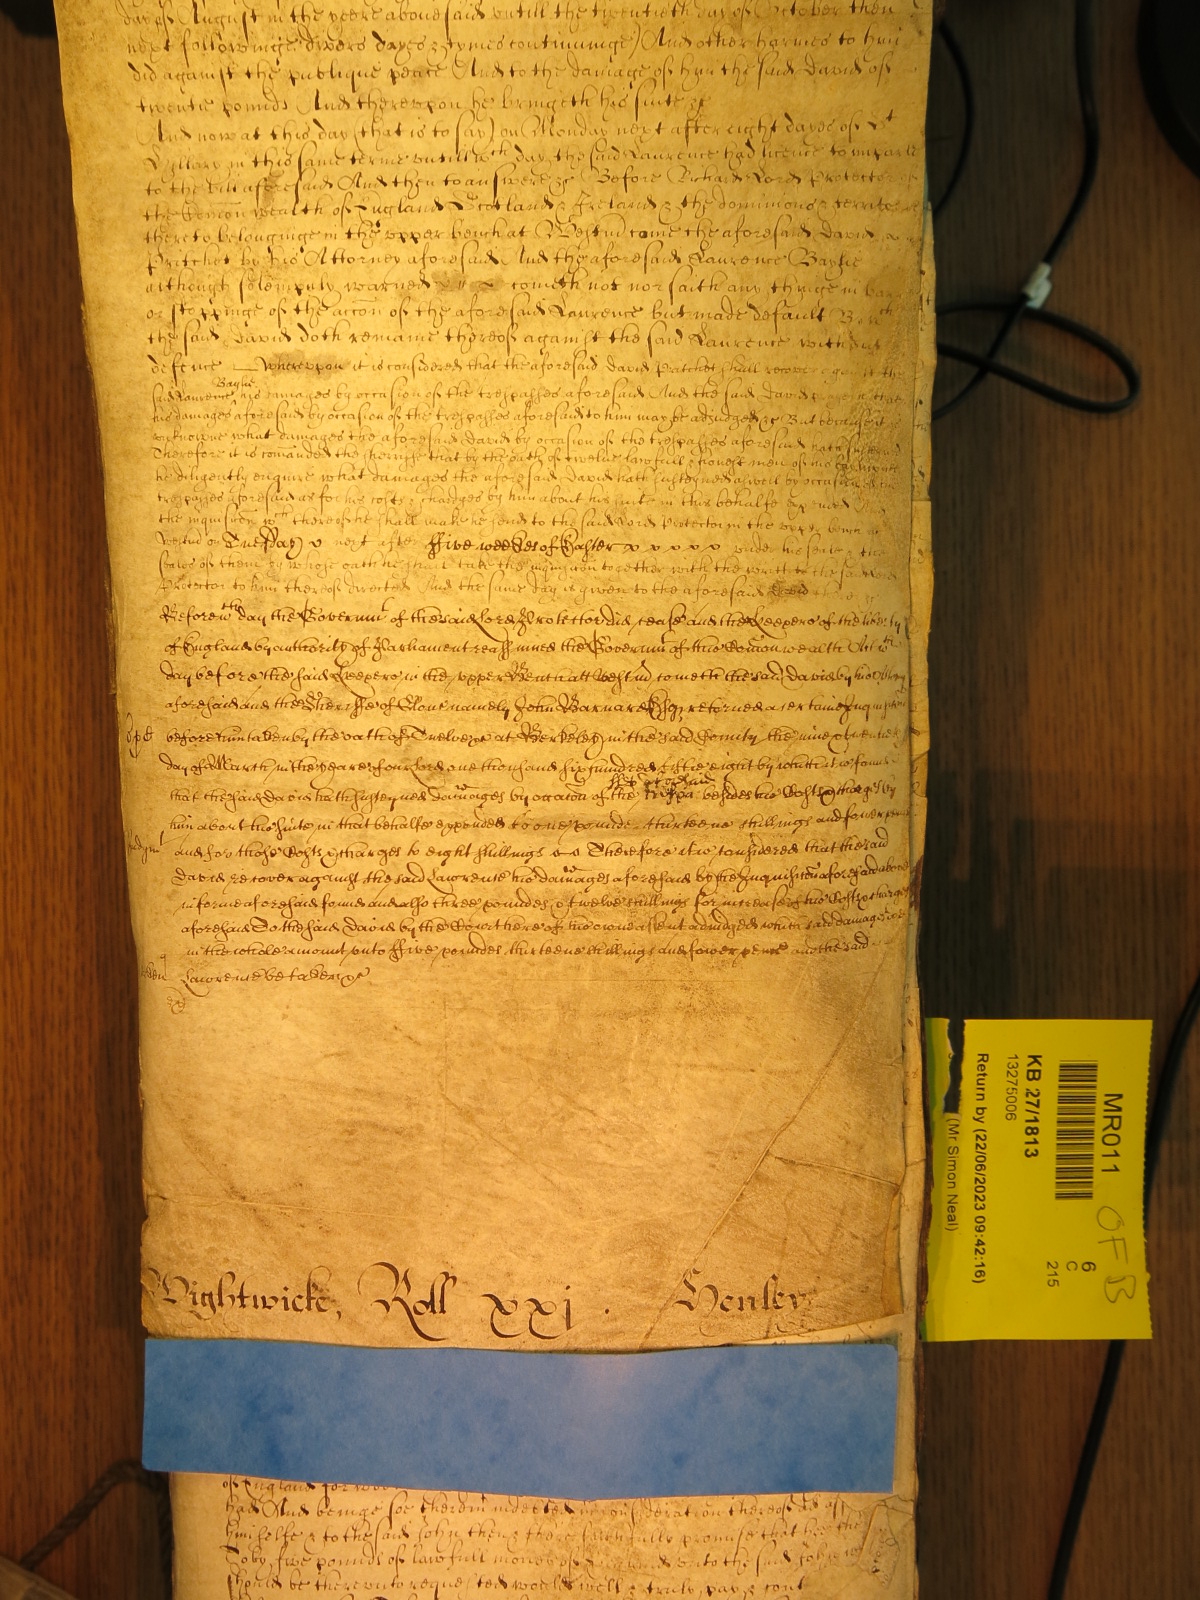 day of August in the yeere abovesaid untill the twentieth day of October then
next followinge divers dayes & tymes continuinge) And other harmes to him
did against the publique peace And to the damage of him the said David of
twentie pounds And thereupon he bringeth his suite &c
And now at this day (that is to say) on Monday next after eight dayes of St
Hillary in this same terme untill wch day the said Laurence had licence to imparle
to the bill aforesaid And then to answere &c Before Richard Lord Protector of
the Comon wealth of England Scotland & Ireland & the dominions & territor
thereto belonginge in the upper bench at Westm come the aforesaid David
Pritchet by his Attorney aforesaid And the aforesaid Laurence Baylie
although solempnly warned cometh not nor saith any thinge in barr
or stoppinge of the accon of the aforesaid Laurence but made default
the said David doth remaine thereof against the said Laurence without
defence Whereupon it is considered that the aforesaid David Pritchet shall recover against the
said Laurence Baylie his damages by occasion of the trespasses aforesaid And the said David
his damages aforesaid by occasion of the trespasses aforesaid to him may be adjudged &c But because it is
unknowne what damages the aforesaid David by occasion of the trespasses aforesaid hath susteyned
Therefore it is comanded the sherriffe that by the oath of twelve lawfull & honest men of his
he diligently enquire what damages the aforesaid David hath susteyned aswell by occasion of the
trespasses aforesaid as for his costs & chardges by him about his suite in this behalfe expended And
the inquisicon wch thereof he shall make he send to the said Lord Protector in the upper bench at
Westm on Tuesday next after ffive weekes of Easter under his seale & the
seales of them by whose oath he shall take the inquisicon together with the writt to the said Lord
Protector to him thereof directed And the same day is given to the aforesaid David there &c
Before wch day the Governmt of the said Lord Protector did cease and the Keepers of the liberty
of England by authority of Parliament reassumed the Governmt of this Comonwealth Att wch
day before the said Keepers in the upper Bench att Westm cometh the said David by his Attorney
aforesaid and the Sheriffe of Glouc namely John Barnard Esqr returned a certaine Inquisicon
before him taken by the oath of Twelve &c at Berkeley in the said County the nine & twentieth
day of March in the yeare of our Lord one thousand six hundred fiftie eight by which it is found
that the said David hath susteyned damages by occacon of the trespas aforesaid besides his Costs & charges by
him about his suite in that behalfe expended to one pounde thirteene shillings and fower pence
and for those Costs & charges to eight shillings Therefore it is considered that the said
David recover against the said Laurence his damages aforesaid by the Inquisicon aforesaid above
in forme aforesaid found and also three poundes & twelve shillings for increase of his Costs & charges
aforesaid To the said David by the Court here of his owne assent adjudged which said damages
in the whole amount unto ffive poundes thirteene shillings and fower pence And the said
Laurence be taken &c
Wightwicke, Roll xxj . Henley
MR011
OFB
6
C
215
KB 27/1813
13275006
Return by (22/06/2023 09:42:16)
(Mr Simon Neal)
of England for
had And beinge soe therein indebted in consideracon thereof did
himselfe & to the said John then & there faithfully promise that hee the
Toby five pounds of lawfull money of England unto the said John
should be thereunto requested would well & truly pay & cont